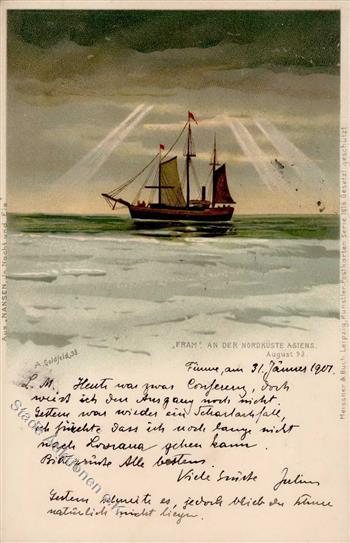 Aus „NANSEN, In Nacht und Eis“
Meissner & Buch, Leipzig, Künstler-Postkarten Serie 1015 Gesetzl. geschützt.
A. Goldfeld, 98.
„FRAM“, AN DER NORDKÜSTE ASIENS.
August 93
Fiume, am 31. Jänner 1901.
L. M. Heute war zwar Conferenz, doch
weiß ich den Ausgang noch nicht.
Gestern war wieder ein Scharlachfall,
ich fürchte dass ich noch lange nicht
nach Lovrana gehen kann.
Bitte grüße Alle bestens.
Viele Grüße Julius
Gestern schneite es, jedoch blieb der Schnee
natürlich nicht liegen.